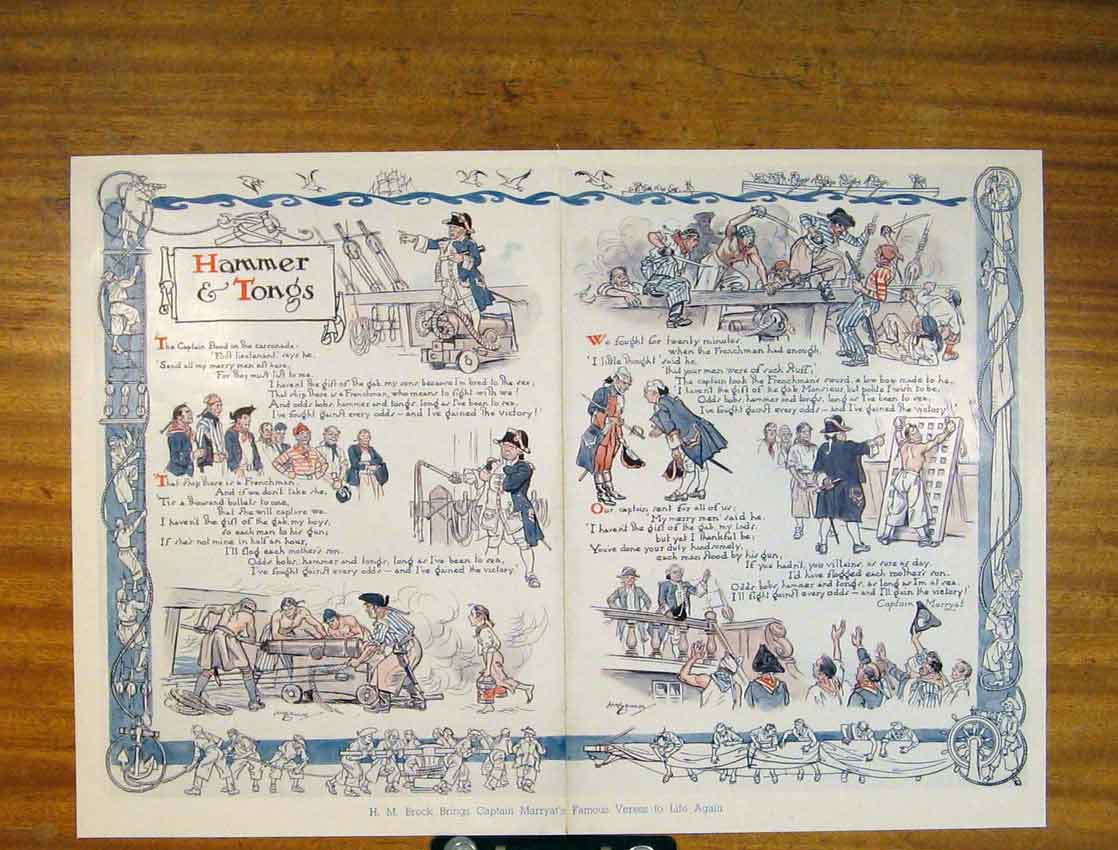 Hammer
& Tongs
The Captain stood on the carronade:
'First lieutenant' says he,
'Send all my merry men aft here,
For they must list to me.
I haven't the gift of the gab, my sons because I'm bred to the sea;
That ship there is a Frenchman, who means to fight with we!
And odds bobs, hammer and tongs, long as I've been to sea,
I've fought gainst every odds — and I've gained the victory!
'That ship there is a Frenchman,
And if we don't take she,
'Tis a thousand bullets to one,
That she will capture we.
I haven't the gift of the gab, my boys,
so each man to his gun;
If she's not mine in half an hour,
I'll flog each mother's son.
Odds bobs, hammer and tongs, long as I've been to sea,
I've fought gainst every odds — and I've gained the victory.'
We fought for twenty minutes
when the Frenchman had enough,
'I little thought' said he,
that your men were of such stuff;'
The captain took the Frenchman's sword, a low bow made to he,
'I haven't the gift of the gab, Monsieur, but polite I wish to be;
Odds bobs, hammer and tongs, long as I've been to sea,
I've fought gainst every odds — and I've gained the victory!'
Our captain sent for all of us;
'My merry men' said he,
'I haven't the gift of the gab, my lads,
but yet I thankful be;
You've done your duty handsomely,
each man stood by his gun,
If you hadn't, you villains, as sure as day,
I'd have flogged each mother's son.
Odds bobs, hammer and tongs, as long as I'm at sea,
I'll fight gainst every odds — and I'll gain the victory!'
Captain Marryat
H. M. Brock Brings Captain Marryat's Famous Verses to Life Again